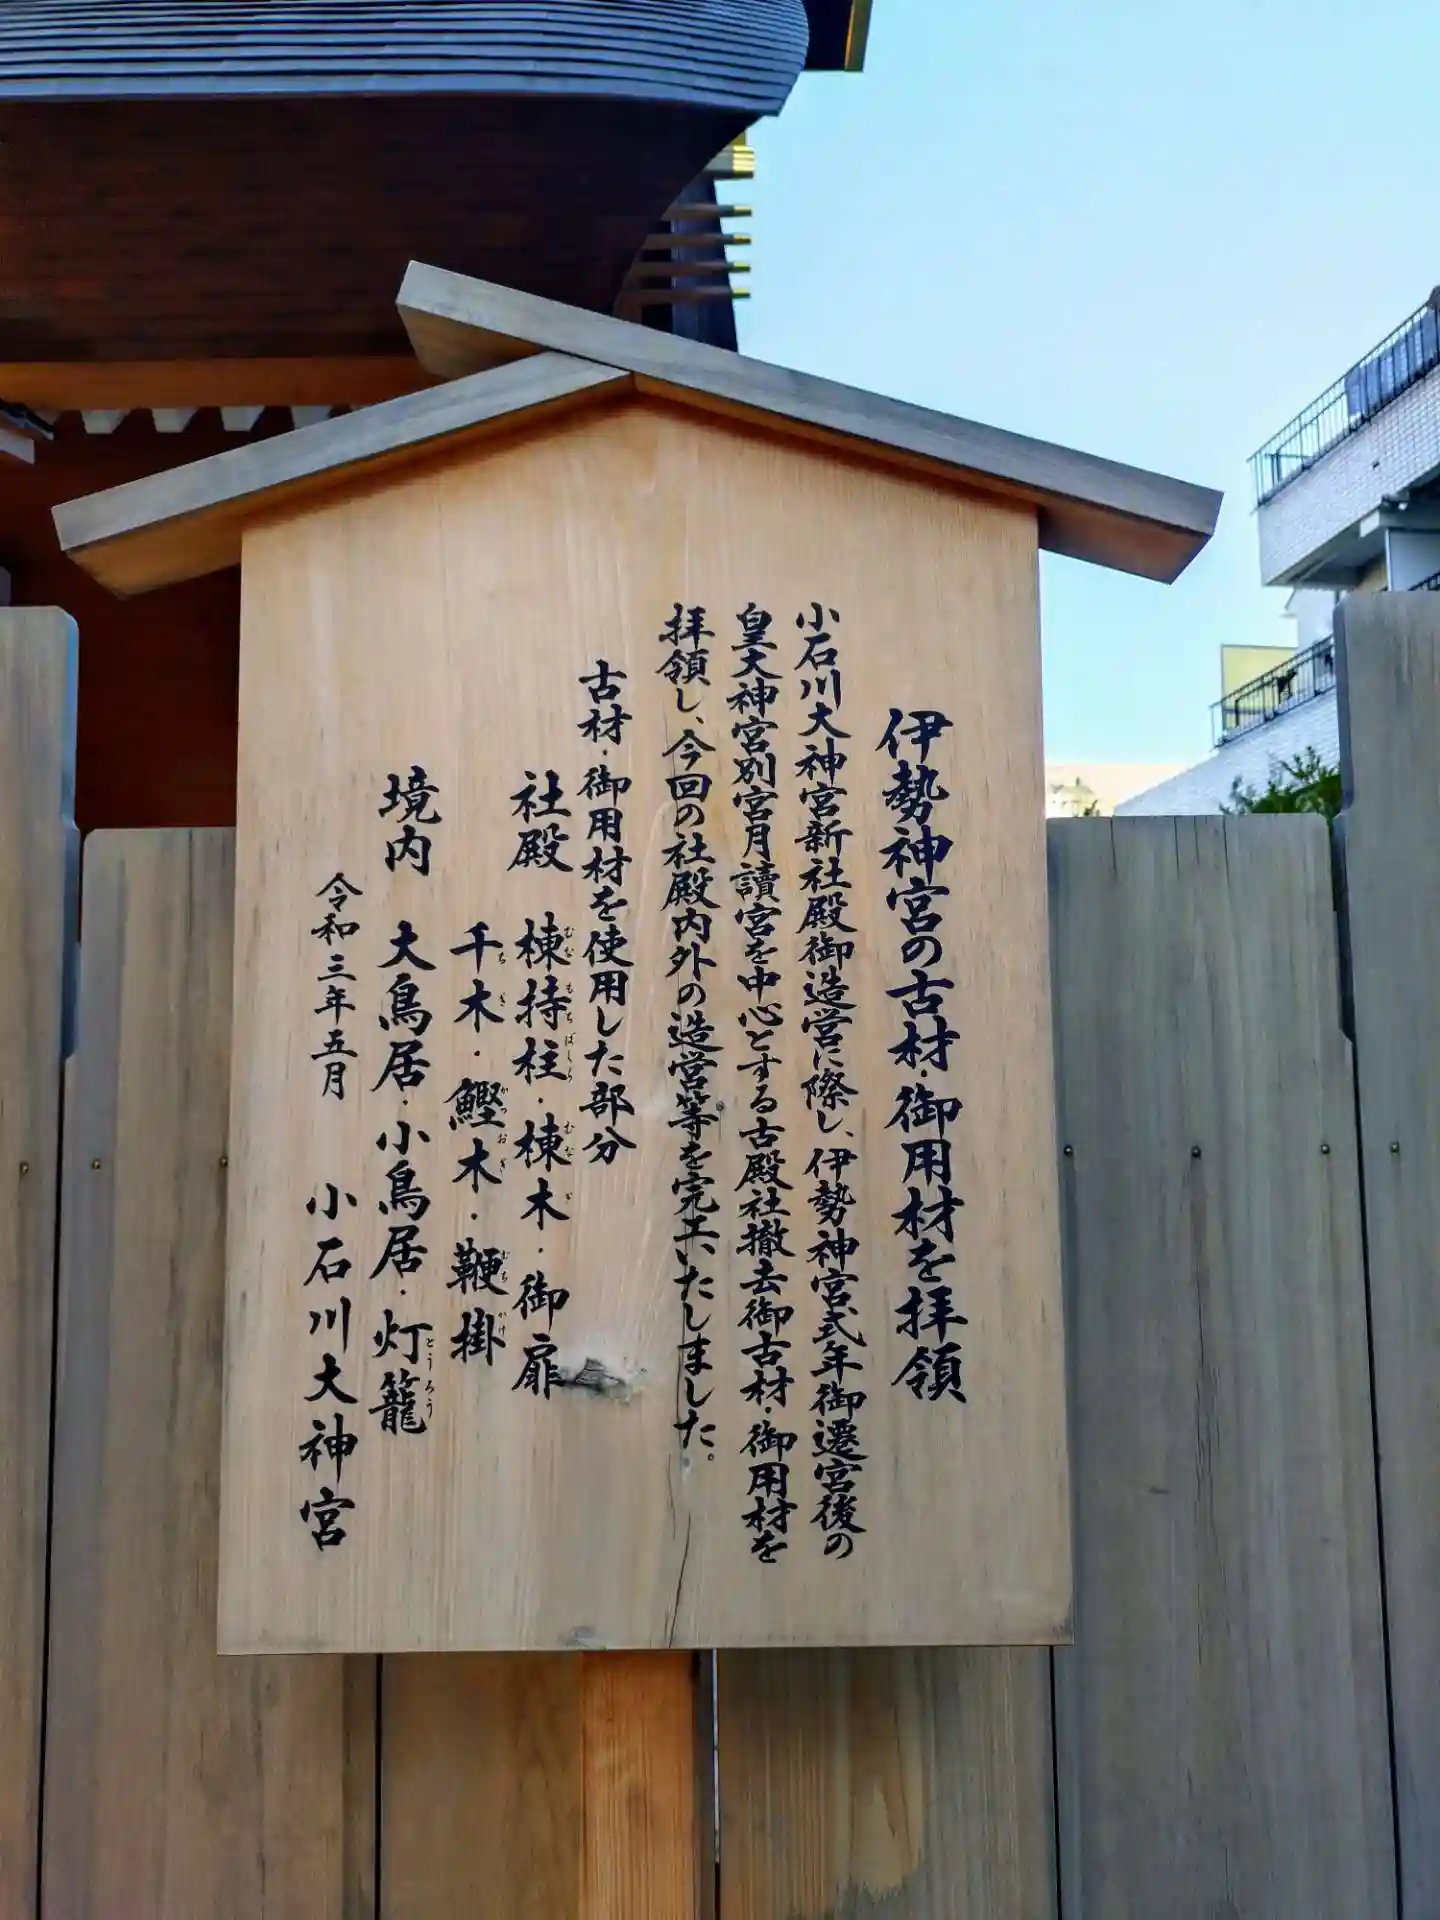 伊勢神宮の古材・御用材を拝領
小石川大神宮新社殿御造営に際し、伊勢神宮式年御遷宮後の
皇大神宮別宮月讀宮を中心とする古殿社撤去御古材・御用材を
拝領し、今回の社殿内外の造営等を完工いたしました。
古材・御用材を使用した部分
社殿 棟持柱・棟木・御扉
むなもちばしら むなぎ
千木・鰹木・鞭掛
ちぎ かつおぎ むちかけ
境内 大鳥居・小鳥居・灯籠
とうろう
令和三年五月 小石川大神宮